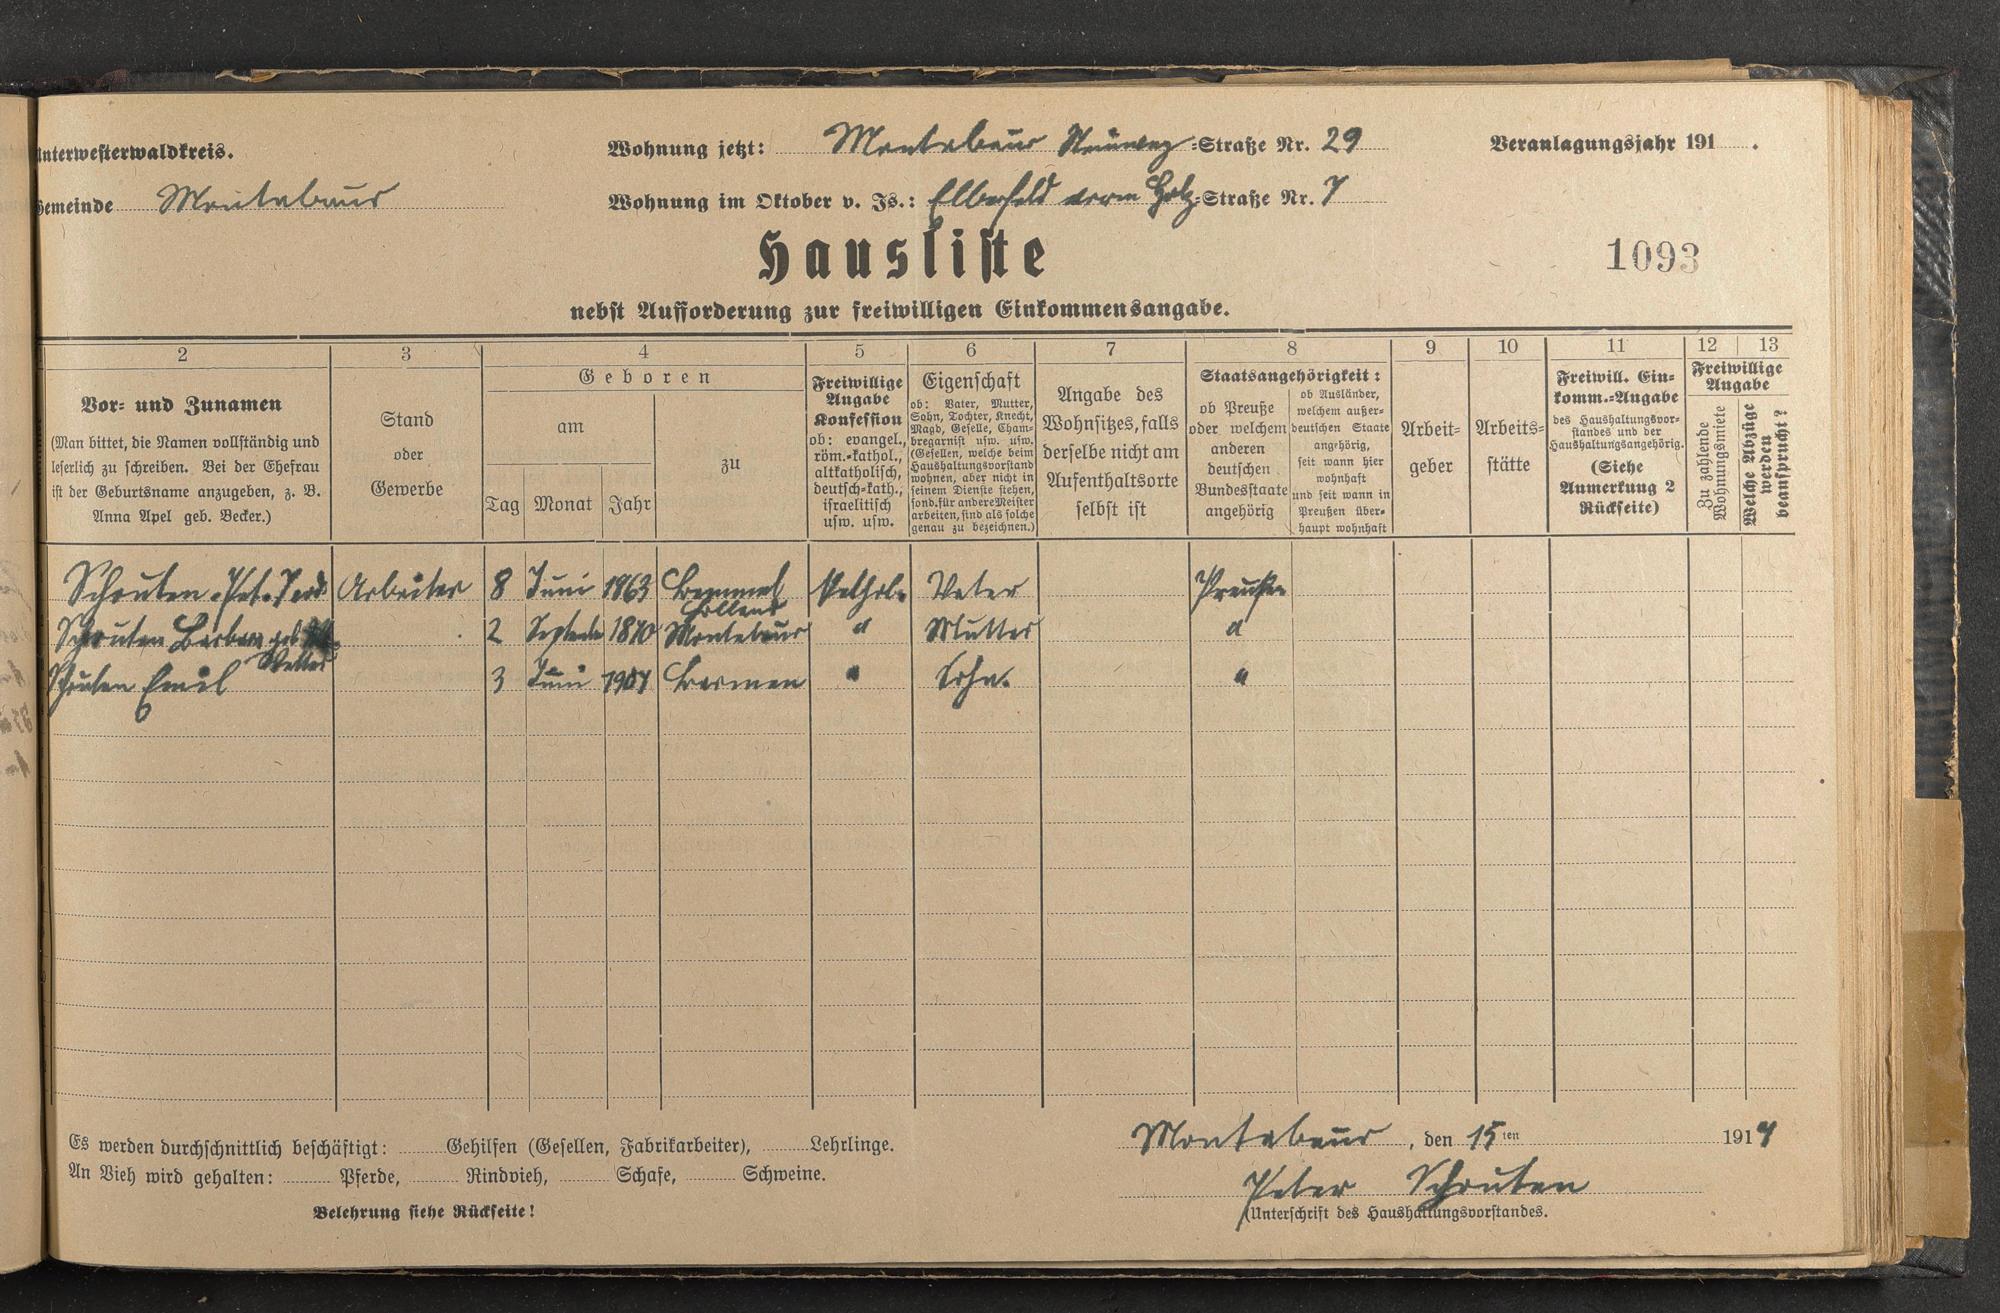 Unterwesterwaldkreis.
Wohnung jetzt: Montabaur Steinweg-Straße Nr. 29
Veranlagungsjahr 191 .
Gemeinde Montabaur
Wohnung im Oktober v. Js.: Elberfeld Holz-Straße Nr. 7
Hausliste
1093
nebst Aufforderung zur freiwilligen Einkommensangabe.
2 3 4 5 6 7 8 9 10 11 12 13
Vor- und Zunamen
(Man bittet, die Namen vollständig und
leserlich zu schreiben. Bei der Ehefrau
ist der Geburtsname anzugeben, z. B.
Anna Apel geb. Becker.)
Stand
oder
Gewerbe
Geboren
am
Tag Monat Jahr
zu
Freiwillige
Angabe
Konfession
ob: evangel.,
röm.-kathol.,
altkatholisch,
deutsch-kath.,
israelitisch
usw. usw.
Eigenschaft
ob: Vater, Mutter,
Sohn, Tochter, Knecht,
Magd, Geselle, Cham-
bregarnist usw. usw.
(Gesellen, welche beim
Haushaltungsvorstand
wohnen, aber nicht in
seinem Dienste stehen,
sond. für andere Meister
arbeiten, sind als solche
genau zu bezeichnen.)
Angabe des
Wohnsitzes, falls
derselbe nicht am
Aufenthaltsorte
selbst ist
Staatsangehörigkeit:
ob Preuße
oder welchem
anderen
deutschen
Bundesstaate
angehörig
ob Ausländer,
welchem außer-
deutschen Staate
angehörig,
seit wann hier
wohnhaft
und seit wann in
Preußen über-
haupt wohnhaft
Arbeit-
geber
Arbeits-
stätte
Freiwill. Ein-
komm.-Angabe
des Haushaltungsvor-
standes und der
Haushaltungsangehörig.
(Siehe
Anmerkung 2
Rückseite)
Freiwillige
Angabe
Zu zahlende
Wohnungsmiete
Welche Abzüge
werden
beansprucht?
Schouten Pet. Ferd Arbeiter 8 Juni 1863 Bemmel Kathol. Vater Preuße
Holland
Schouten Barbara geb. 2 Septemb 1870 Montabaur " Mutter "
Schouten Emil 3 Juni 1907 Barmen " Sohn. "
Es werden durchschnittlich beschäftigt: Gehilfen (Gesellen, Fabrikarbeiter), Lehrlinge.
An Vieh wird gehalten: Pferde, Rindvieh, Schafe, Schweine.
Belehrung siehe Rückseite!
Montabaur, den 15ten 1914
Peter Schouten
(Unterschrift des Haushaltungsvorstandes.